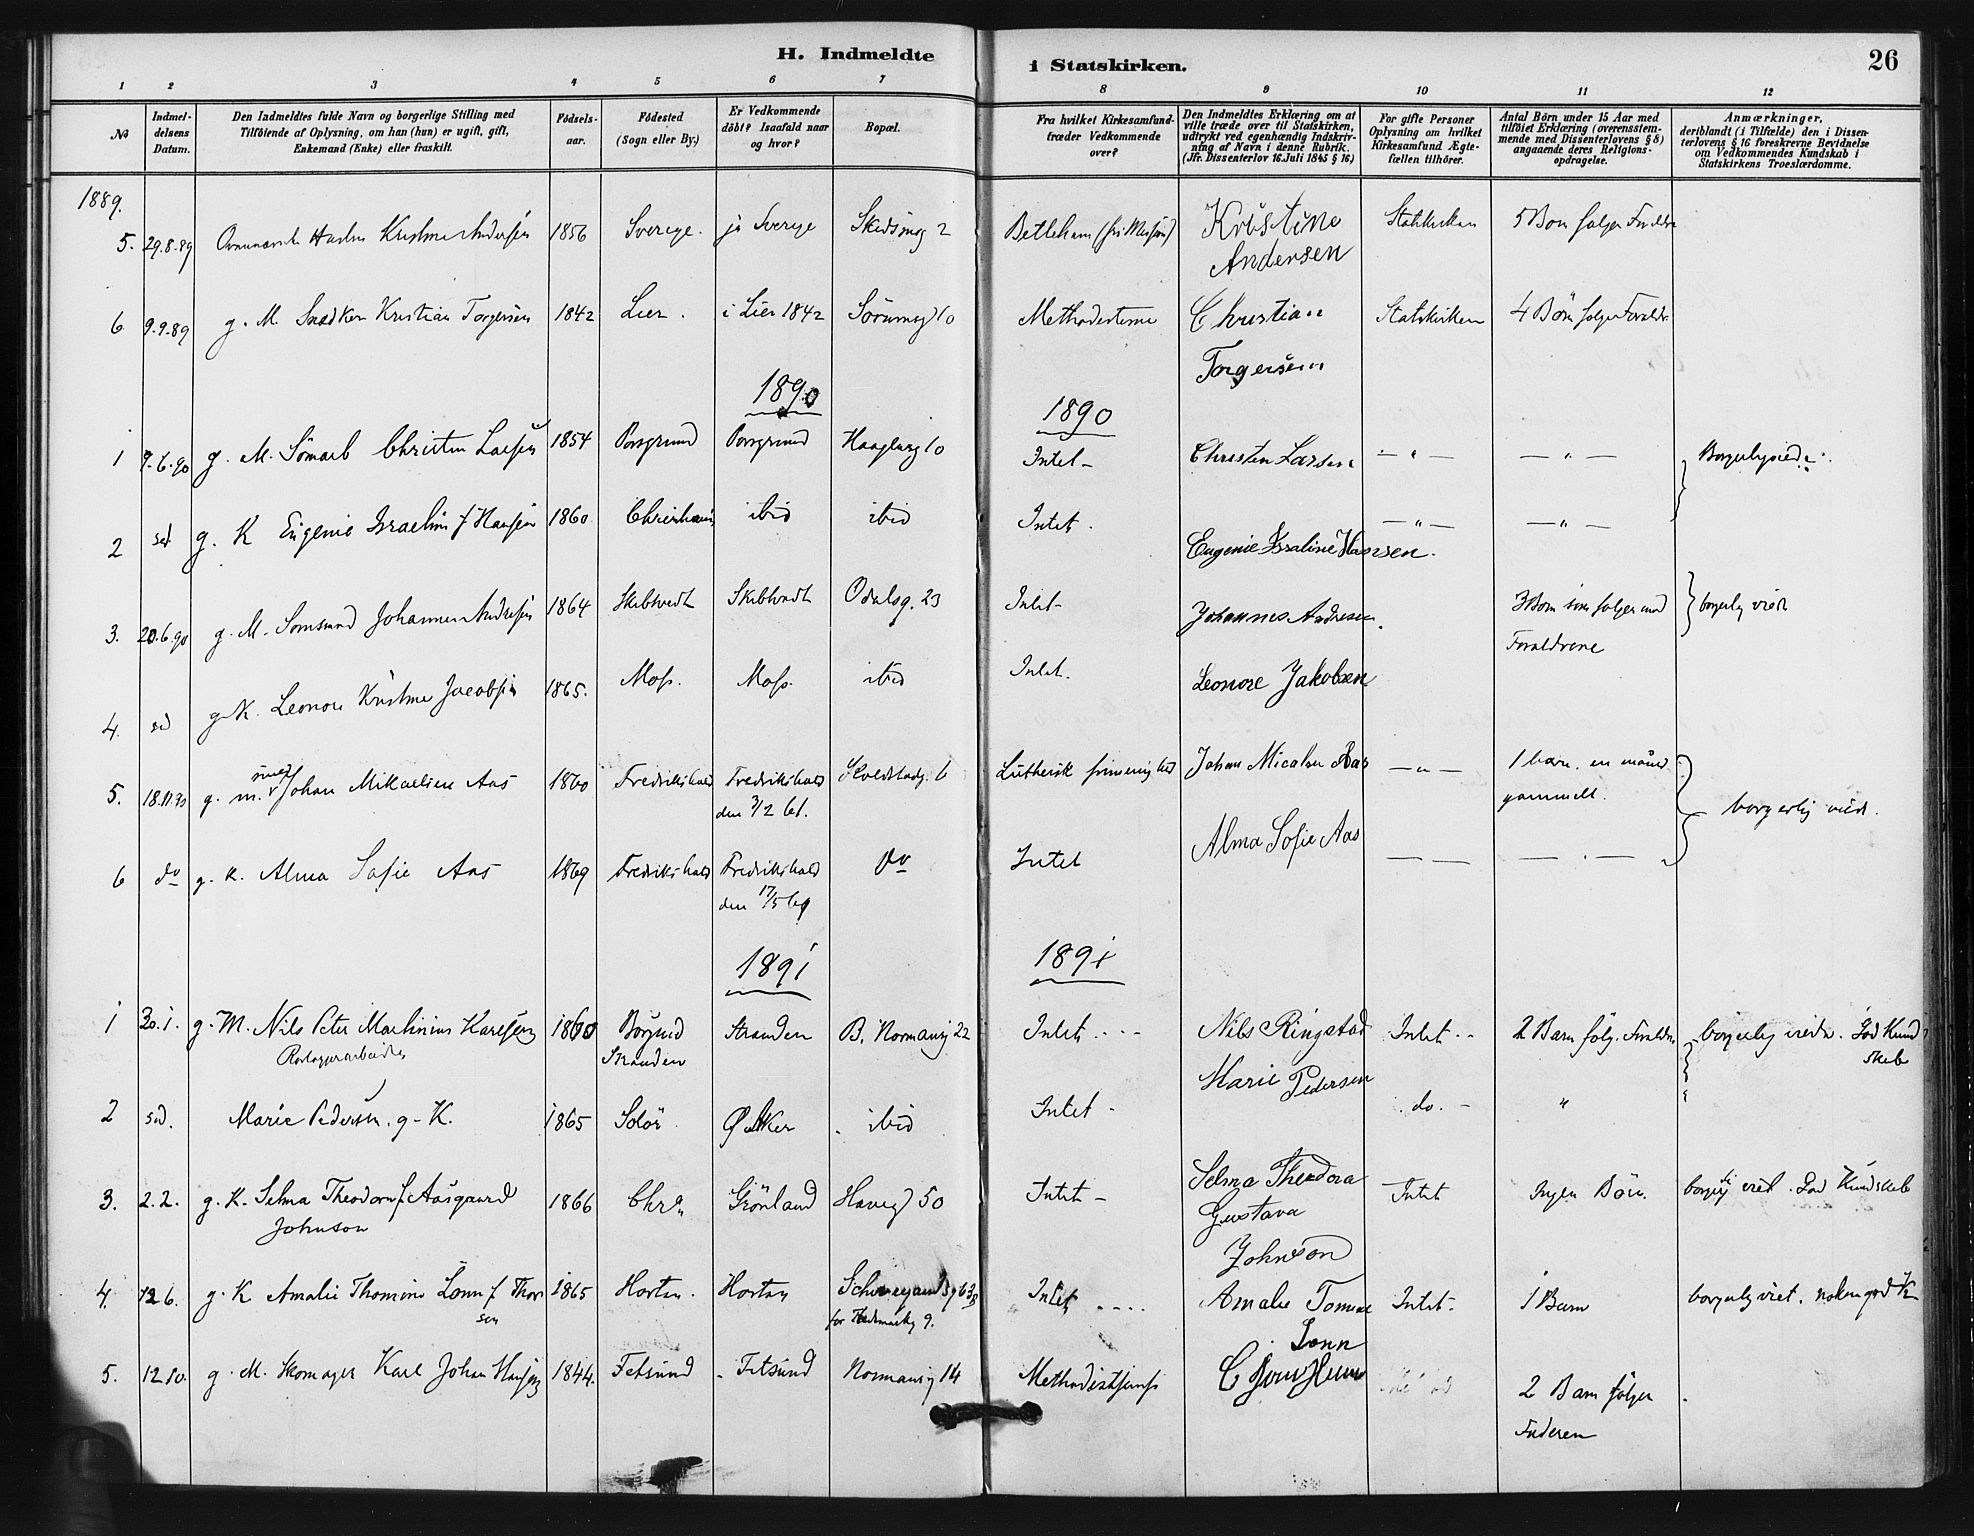 H. Indmeldte i Statskirken.
26
1 2 3 4 5 6 7 8 9 10 11 12
№
Indmel-
delsens
Datum.
Den Indmeldtes fulde Navn og borgerlige Stilling med
Tilföiende af Oplysning, om han (hun) er ugift, gift,
Enkemand (Enke) eller fraskilt.
Födsels-
aar.
Födested
(Sogn eller By.)
Er Vedkommende
döbt? Isaafald naar
og hvor?
Bopæl.
Fra hvilket Kirkesamfund
træder Vedkommende
over?
Den Indmeldtes Erklæring om at
ville træde over til Statskirken,
udtrykt ved egenhændig Indskriv-
ning af Navn i denne Rubrik.
(Jfr. Dissenterlov 16. Juli 1845 § 16)
For gifte Personer
Oplysning om hvilket
Kirkesamfund Ægte-
fællen tilhörer.
Antal Börn under 15 Aar med
tilföiet Erklæring (overensstem-
mende med Dissenterlovens § 8)
angaaende deres Religions-
opdragelse.
Anmærkninger,
deriblandt (i Tilfælde) den i Dissen-
terlovens § 16 foreskrevne Bevidnelse
om Vedkommendes Kundskab i
Statskirkens Troeslærdomme.
1889.
5. 29.8.89 Hustru Kristine Andersen 1856 Sverige. ja Sverige Skedsmog 2 Betlehem (fri Mission) Kristine Statskirken 5 Born følger Foreldre
Andersen
6 9.9.89 g. M. Snedker Kristian Torgersen 1842 Lier. i Lier 1842 Sörumsg 10 Methodisterne Christian Statskirken 4 Börn følger Foreldre
Torgersen
1890 1890
1 9.6.90 g. M. Sömarb Christen Larsen 1854 Porsgrund Porsgrund Haaglundg 10 Intet – Christen Larsen — " — — " — Borgerlig viede
2 sd g. K Eugenie Israeline f Hansen 1860 Christiania ibid ibid Intet. Eugenie Israline Hansen. — " — — " —
3. 20.6.90 g. M. Johannes Andresen 1864 Skibtvedt Skibtvedt Odalsg. 23 Intet – Johannes Andresen. 3 Born som følger med borgerlig viede
Foraldrene
4. sd g. K. Leonore Kristine Jacobsen 1865. Moss. Moss. ibid Intet. Leonore Jakobsen
5. 18.11.90 g. m. smed Johan Mikaelsen Aas 1860 Fredrikshald Fredrikshald 6 Luthersk frimenighed Johan Micalsen Aas — " — 1 barn. en måned borgerlig viet.
den 7/2 61. gammelt.
6 do g. K. Alma Sofie Aas 1869 Fredrikshald Fredrikshald do Intet Alma Sofie Aas
den 17/5 69
1891 1891
1 30.1. g. M. Nils Peter Martinius Karlsen 1860 Borgund Stranden B, Normansg 22 Intet Nils Ringstad Intet. 2 Barn følg. Foreldre borgerlig viede. God Kund
Stranden skab
2 sd. Marie Pedersen. g. K. 1865 Solör Ø Aker ibid Intet – Marie Pedersen do. – "
3. 2.2. g. K. Selma Theodora f Aasgaard 1866 Chra Grönland Haveg 50 Intet – Selma Theodora Intet Ingen Börn. borgerlig viet. God Kundskab
Johnson Gustava
Johnson
4. 12 6. g. K Amalie Thomine Lonn f Thor 1865 Horten. Horten Schweigaardsg 63 Intet Amalie Tomine Intet. 1 Barn borgerlig viet. noksaa god K
sen før Hedmarkg 9. Lonn
5. 12.10. g. M. Skomager Karl Johan Hansen 1844. Fetsund Fetsund Normansg 14 Methodistsamf 2 Barn følger
Faderen